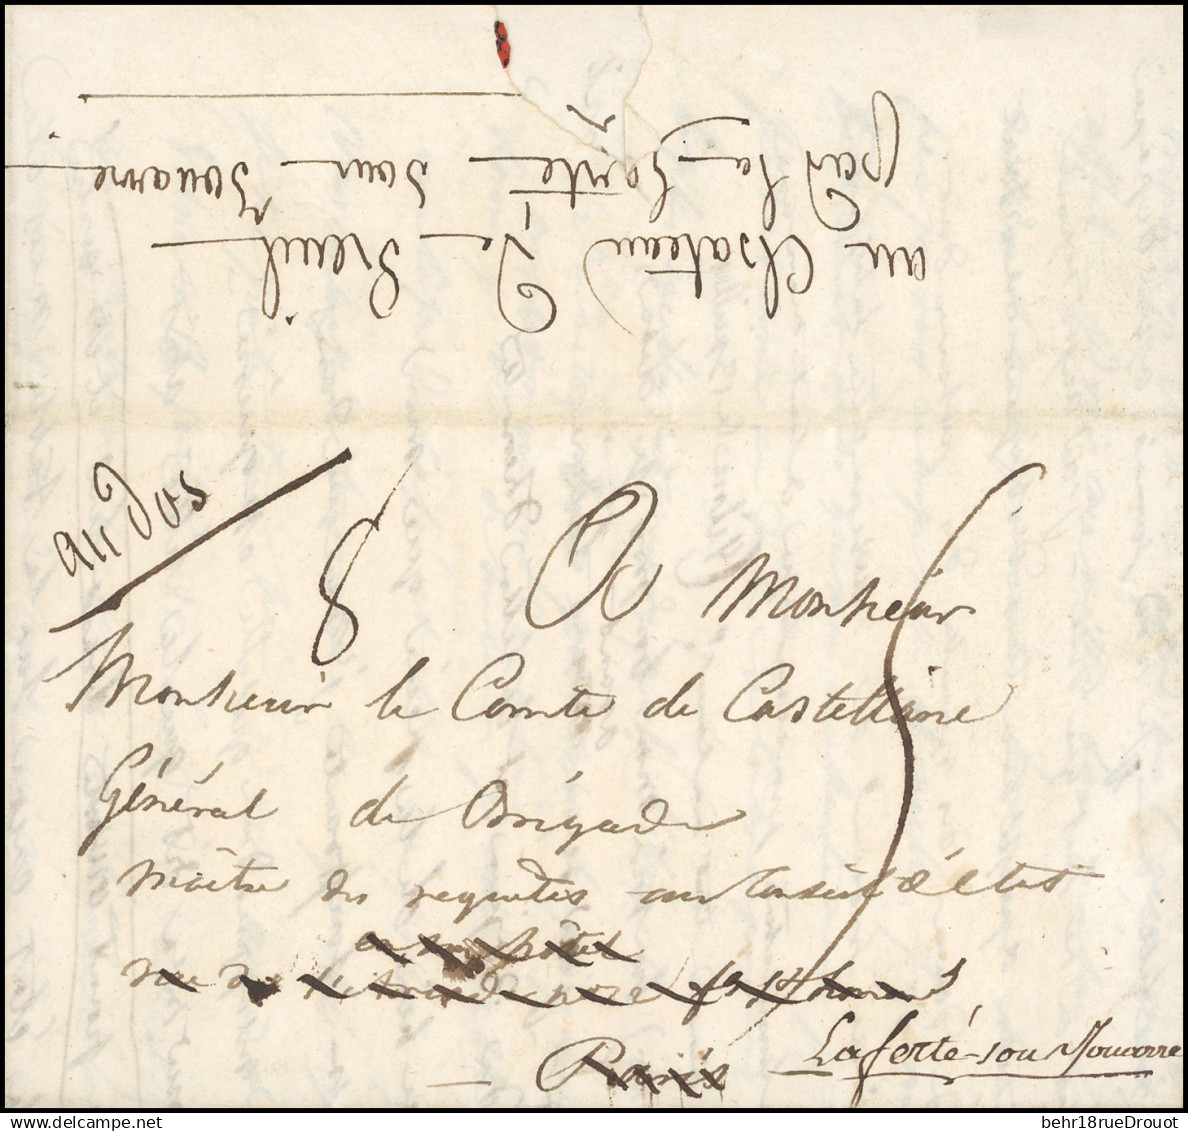 au Chateau De Reuil
par la ferté sou Jouarre
au dos
8
A Monsieur
Monsieur le Comte de Castellane
Général de Brigade
Maître des requêtes au Conseil d'état
rue
Paris
La ferté-sou Jouarre
behr18rueDrouot